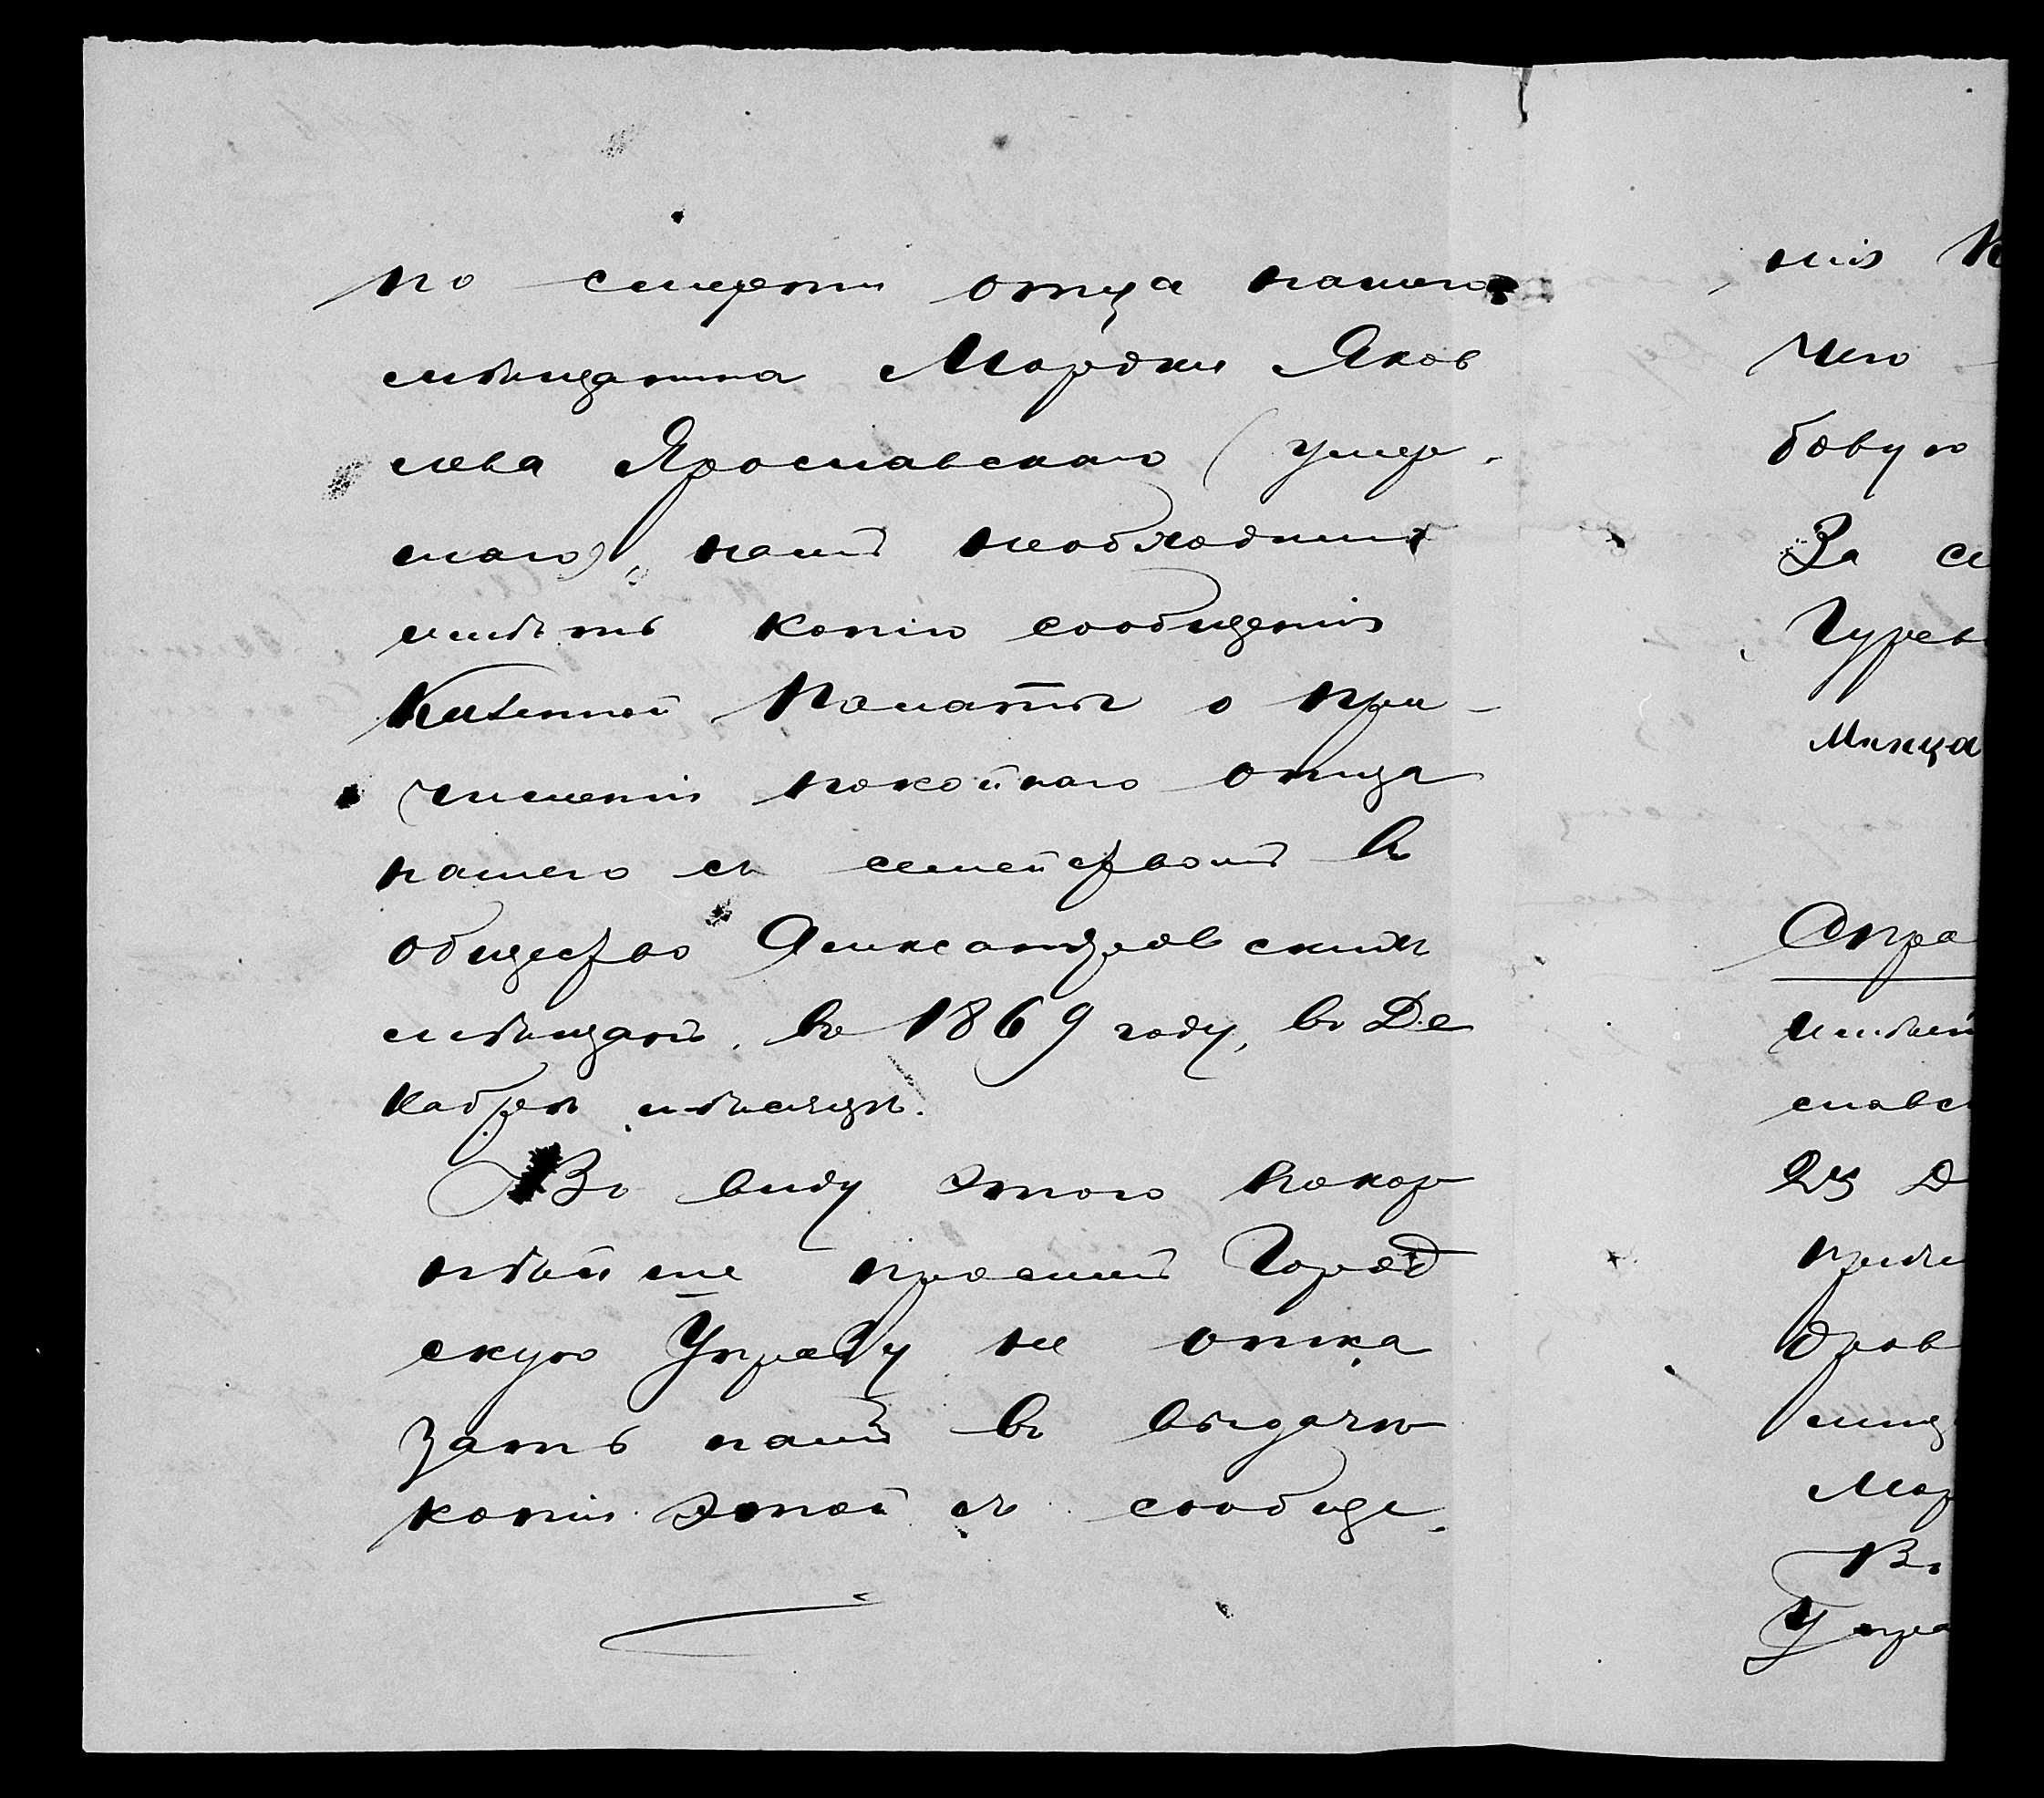 по смерти отца нашего
мѣщанина Мордки Яков
лева Ярославскаго (умер-
шаго), намъ необходимо
имѣть копію сообщенія
Казенной Палаты о при-
численіи покойнаго отца
нашего съ семействомъ въ
общество Александровскихъ
мѣщанъ, въ 1869 году, въ Де
кабрѣ мѣсяцѣ.
Въ виду этого покор
нѣйше просимъ Город
скую Управу не отка
зать намъ въ выдачѣ
копіи этой съ сообще-
нія К
чего
бовую
За се
Гурев
Минца
Спра
имѣет
славс
23 Д
причи
дров
мищ
Мор
Въ
Упра